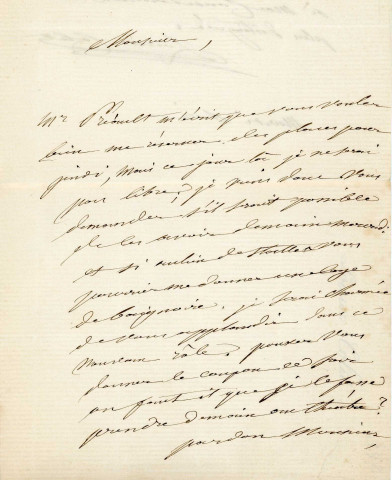 Monsieur,
Mr Prioult m'écrit que vous voulez
bien me réserver des places pour
jeudi, mais ce jour là je ne serai
pas libre, je viens donc vous
demander s'il serait possible
de les avoir demain mercredi
et si au lieu de stalles vous
pourriez me donner une loge
de baignoire, je serai charmée
de vous applaudir dans ce
nouveau rôle, pouvez vous
donner le coupon ce soir
ou faut il que je le fasse
prendre demain au théâtre?
pardon Monsieur,